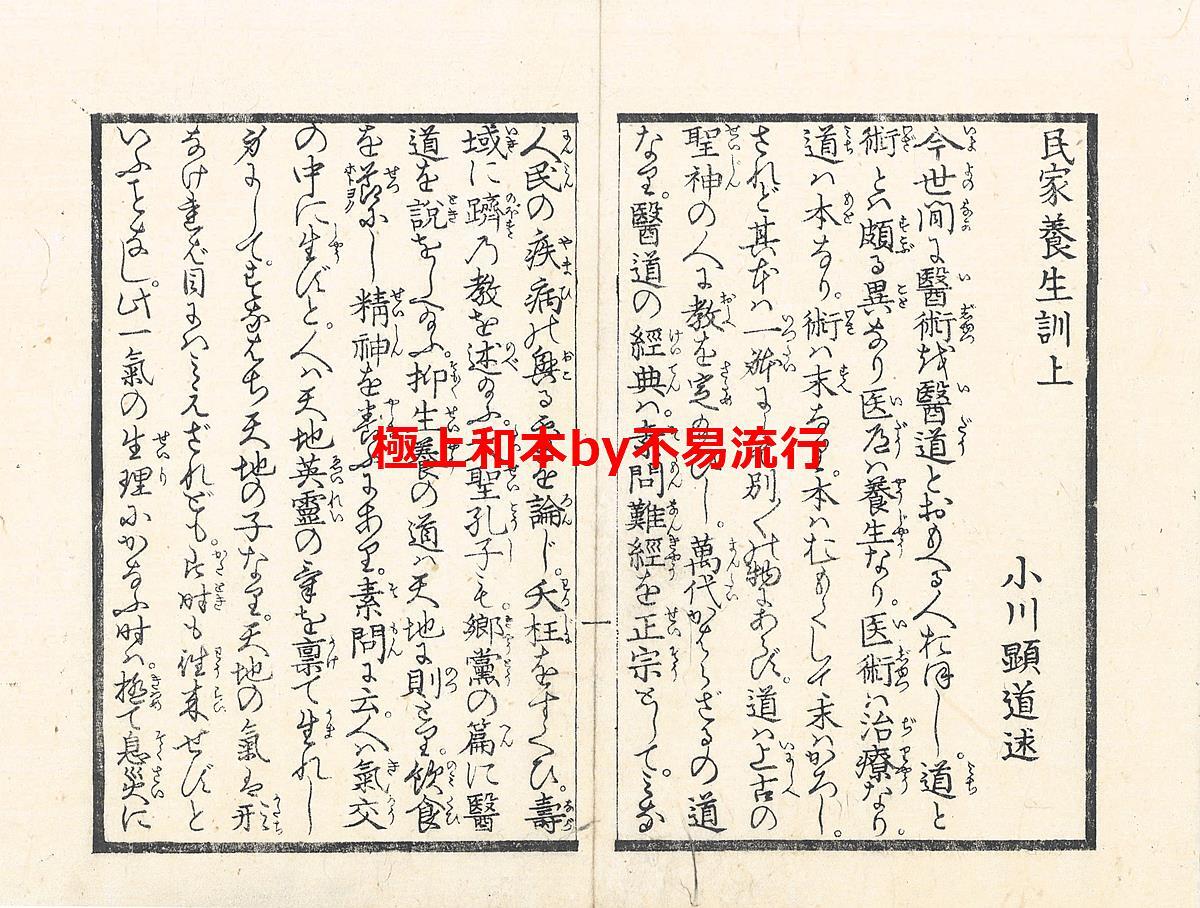 民家養生訓上
小川顕道述
今世間に醫術を醫道とおもへる人おほし。道と
術とは頗る異なり医道は養生なり。医術は治療なり。
道は本なり。術は末なり。本はおもくして末はかろし。
されど其本は一躰にし別〱の物にあらず。道は上古の
聖神の人に教を定め し。萬代かはらざるの道
なり。醫道の經典は。素問難經を正宗として。みな
人民の疾病の興る を論じ。夭枉をすくひ。壽
域に躋の教を述 ふ。大聖孔子も。郷黨の篇に醫
道を説をしへ ふ。抑生養の道は天地に則とり。飲食
を節にし精神を養ふにあり。素問に云。人は氣交
の中に生ずと。人は天地英靈の氣を稟て生れし
身にして。すなはち天地の子なり。天地の氣は形
なければ目にはみえざれども。片時も往来せずと
いふことなし。此一氣の生理にかなふ時は。極て息災に
極上和本by不易流行